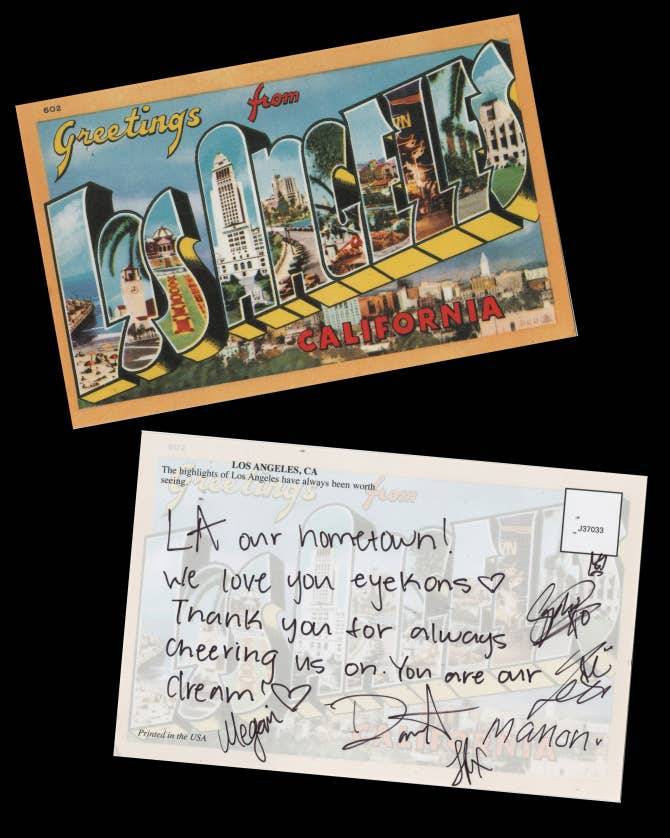 602
Greetings from
LOS ANGELES
CALIFORNIA
602
LOS ANGELES, CA
The highlights of Los Angeles have always been worth
seeing.
J37033
LA our hometown!
We love you eyekons♡
Thank you for always
cheering us on. You are our
dream!♡
Megan
Manon
Printed in the USA